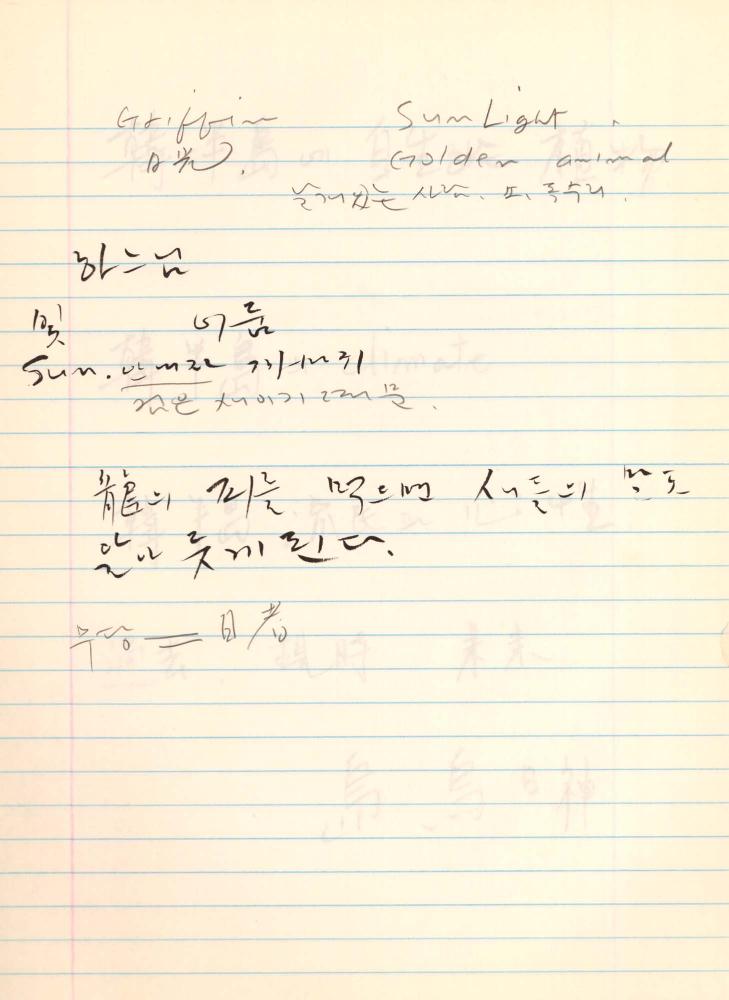 Griffin Sun Light.
日光. Golden animal
날개있는 사람. 또, 독수리.
하느님
빛 여름
Sun.
검은 새이기 때문.
龍의 피를 먹으면 새들의 말도
알아 듣게 된다.
무당 = 日者